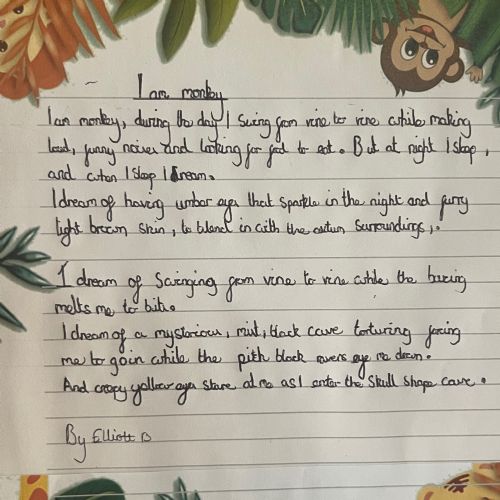 I am monkey
I am monkey, during the day I swing from vine to vine while making
loud, funny noises and looking for food to eat. But at night I sleep,
and when I sleep I dream.
I dream of having umbar eyes that sparkle in the night and furry
light brown skin, to blend in with the autum surroundings,.
I dream of swinging from vine to vine while the
melts me to bits.
I dream of a mystorious, mist, black cave torturing forcing
me to go in while the pith black rovers eye me down.
And creepy yellow eyes stare at me as I enter the skull shape cave.
By Elliott B